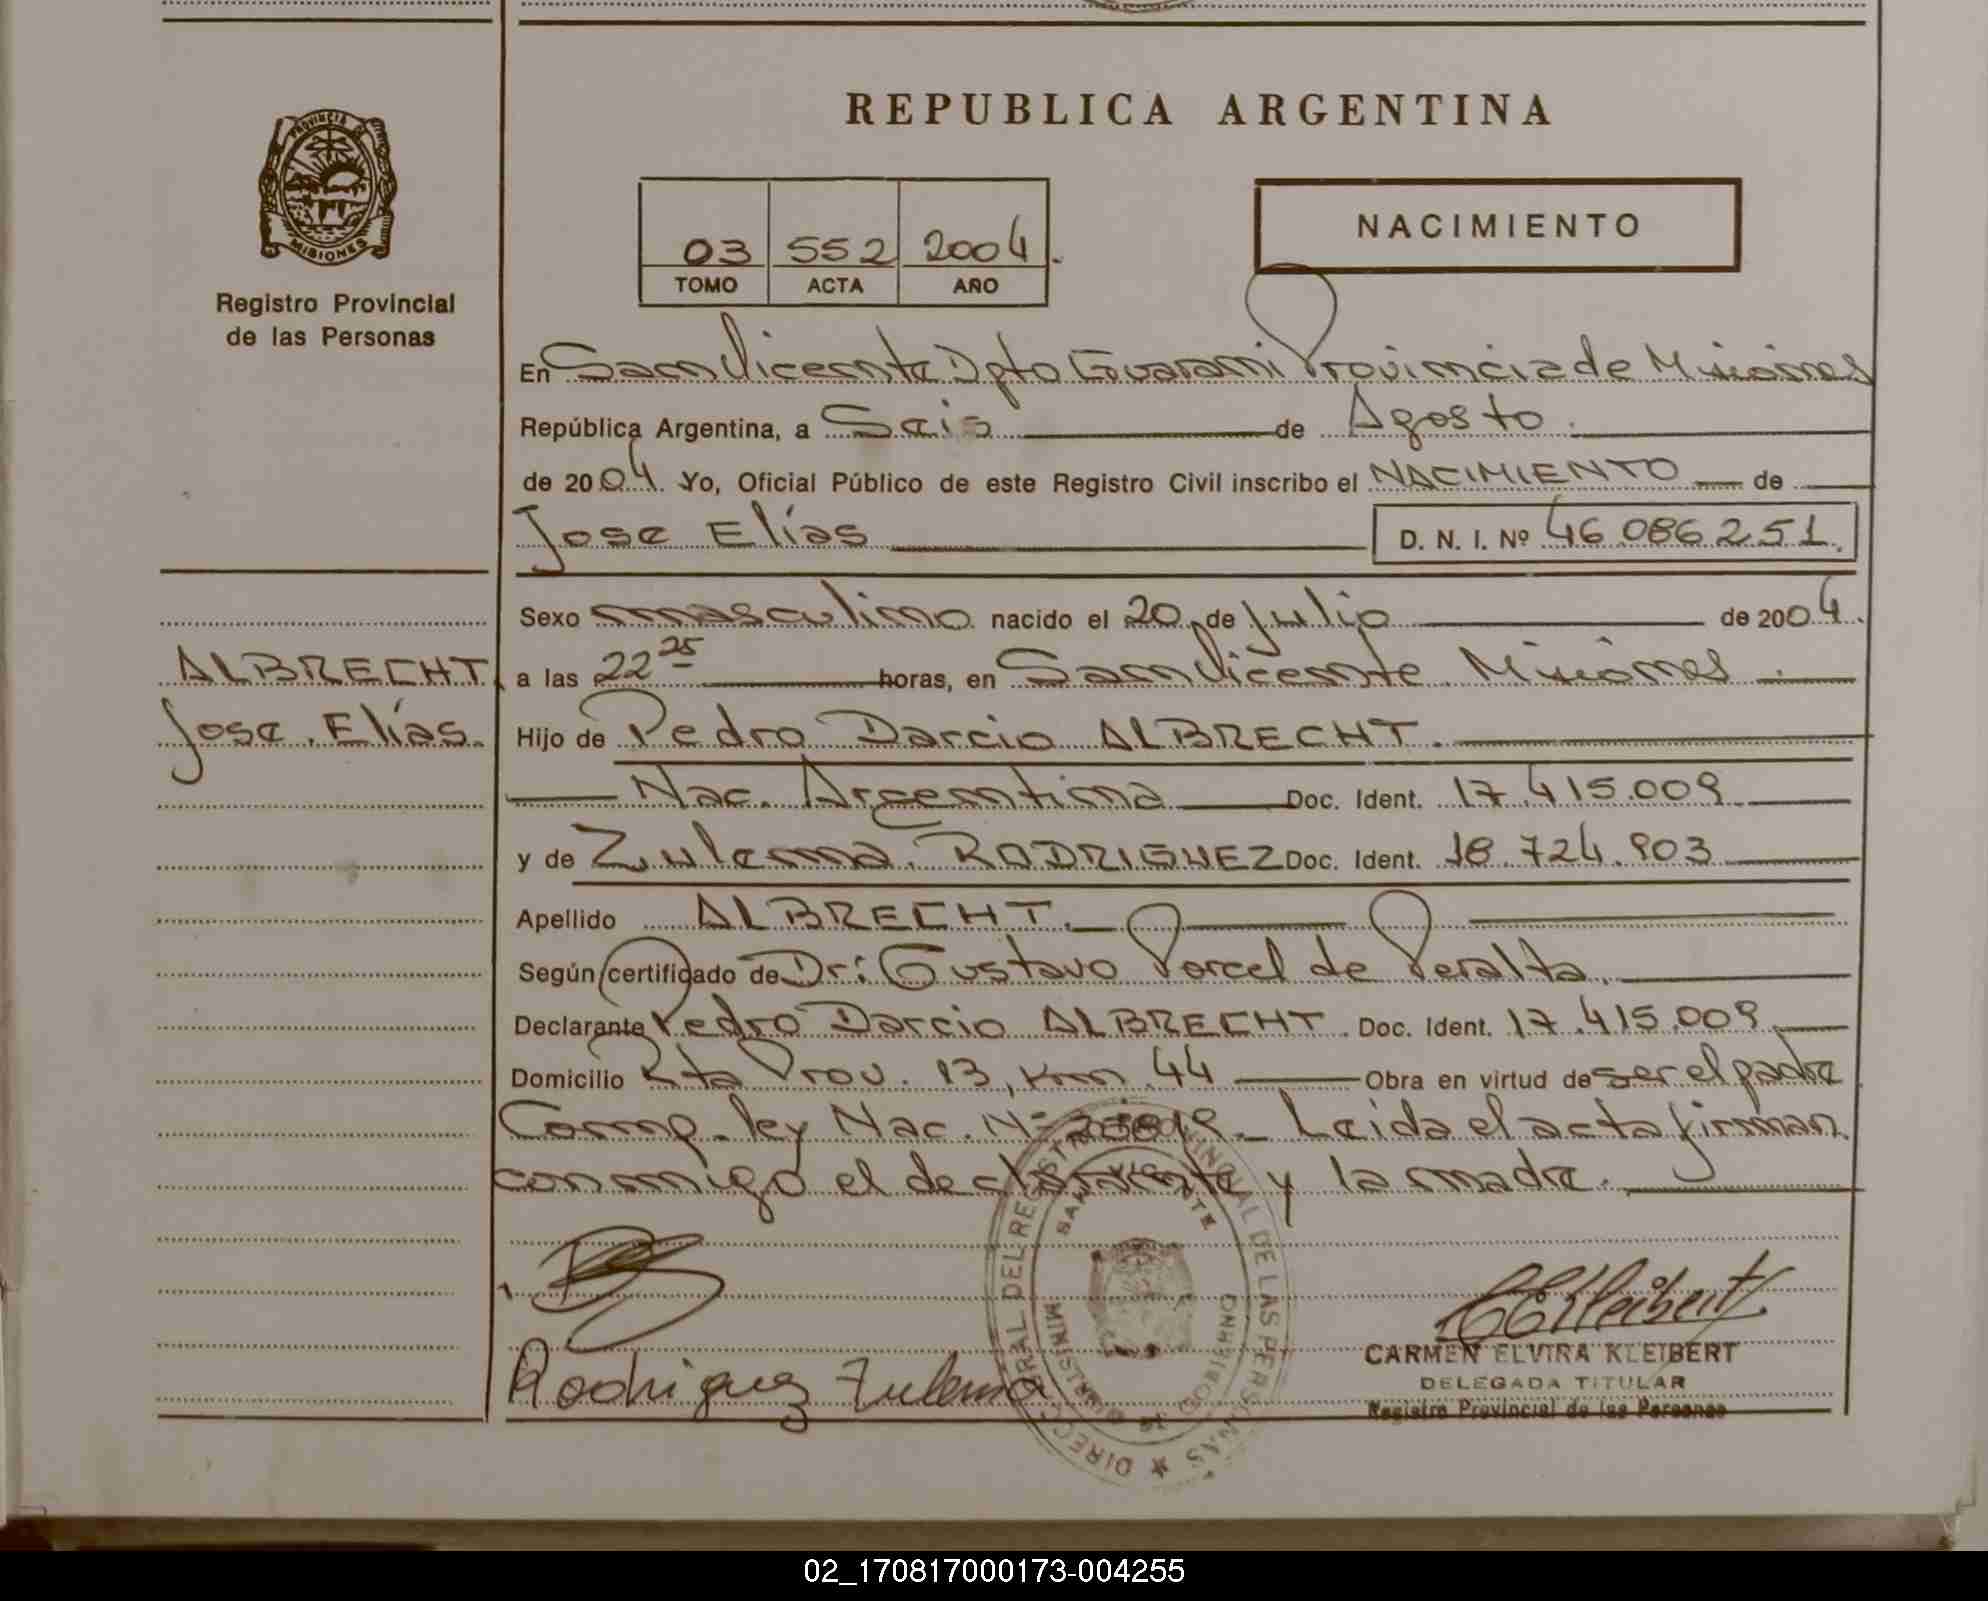 PROVINCIA DE
MISIONES
Registro Provincial
de las Personas
REPUBLICA ARGENTINA
03 552 2004.
TOMO ACTA AÑO
NACIMIENTO
En San Vicente Dpto Guarani Provincia de Misiones
República Argentina, a Seis de Agosto.
de 2004. Yo, Oficial Público de este Registro Civil inscribo el NACIMIENTO de
Jose Elías D. N. I. Nº 46.086.251.
Sexo masculino nacido el 20 de Julio de 2004.
ALBRECHT a las 22 25 horas, en San Vicente Misiones.
Jose Elías. Hijo de Pedro Darcio ALBRECHT.
Nac. Argentina Doc. Ident. 17.415.009
y de Zulema RODRIGUEZ Doc. Ident. 18.724.903
Apellido ALBRECHT.
Según certificado de Dr: Gustavo Porcel de Peralta.
Declarante Pedro Darcio ALBRECHT. Doc. Ident. 17.415.009
Domicilio Rta Prov. 13, Km 44 Obra en virtud de ser el padre
Comp. ley Nac. Nº Leida el acta firman
conmigo el declarante y la madre.
Rodriguez Zulema
DIRECC GRAL DEL REGISTR PROVINCIAL DE LAS PERSONAS
SAN VICENTE
MINISTERIO DE GOBIERNO
CEKleibert
CARMEN ELVIRA KLEIBERT
DELEGADA TITULAR
Registro Provincial de las Personas
02_170817000173-004255